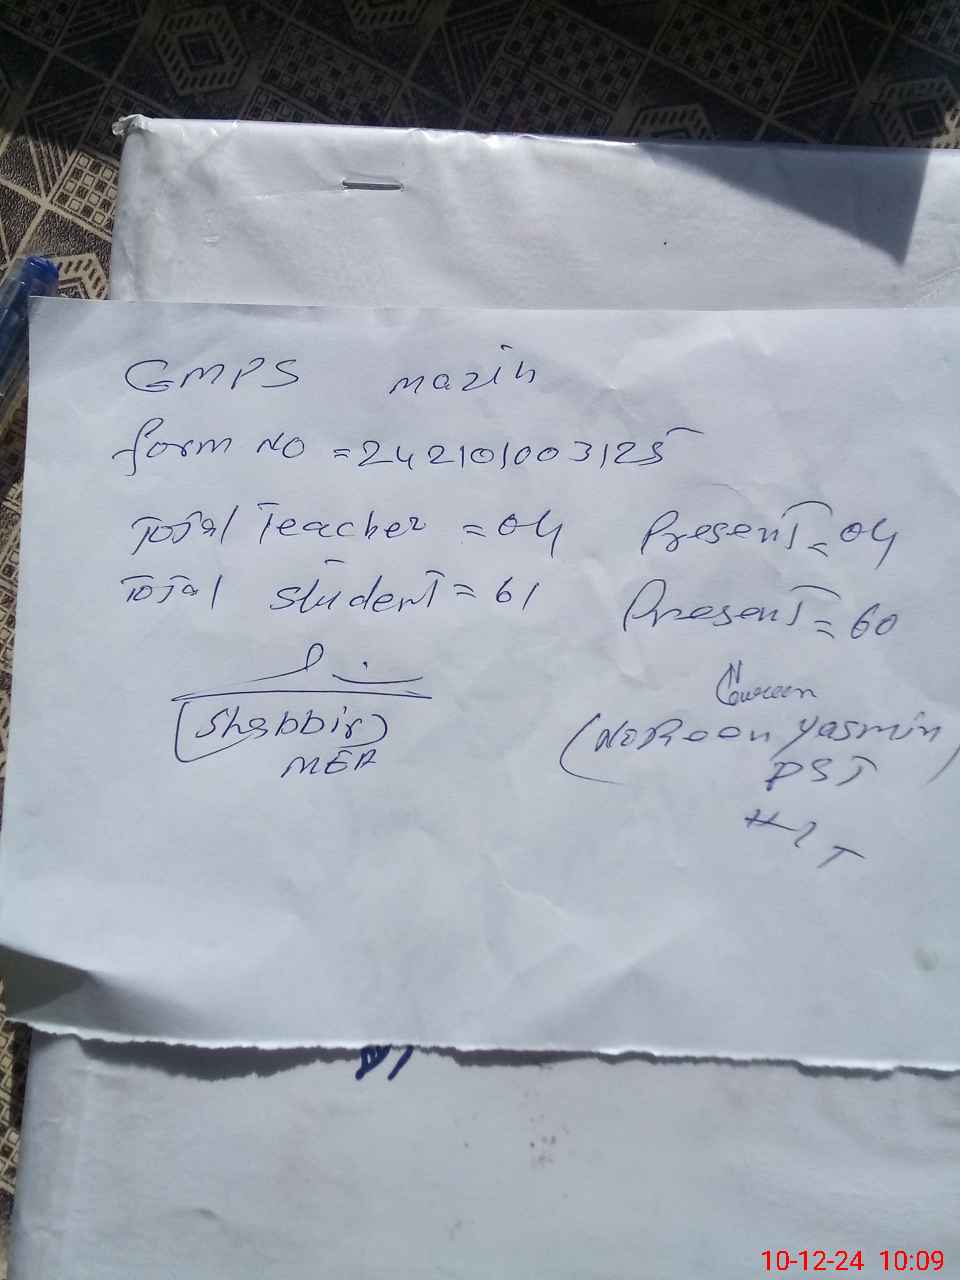 GMPS mazih
form NO = 242101003125
Total Teacher = 04 Present = 04
Total student = 61 Present = 60
Noureen
(Shabbir) (NoReen Yasmin)
MEA PST
10-12-24 10:09